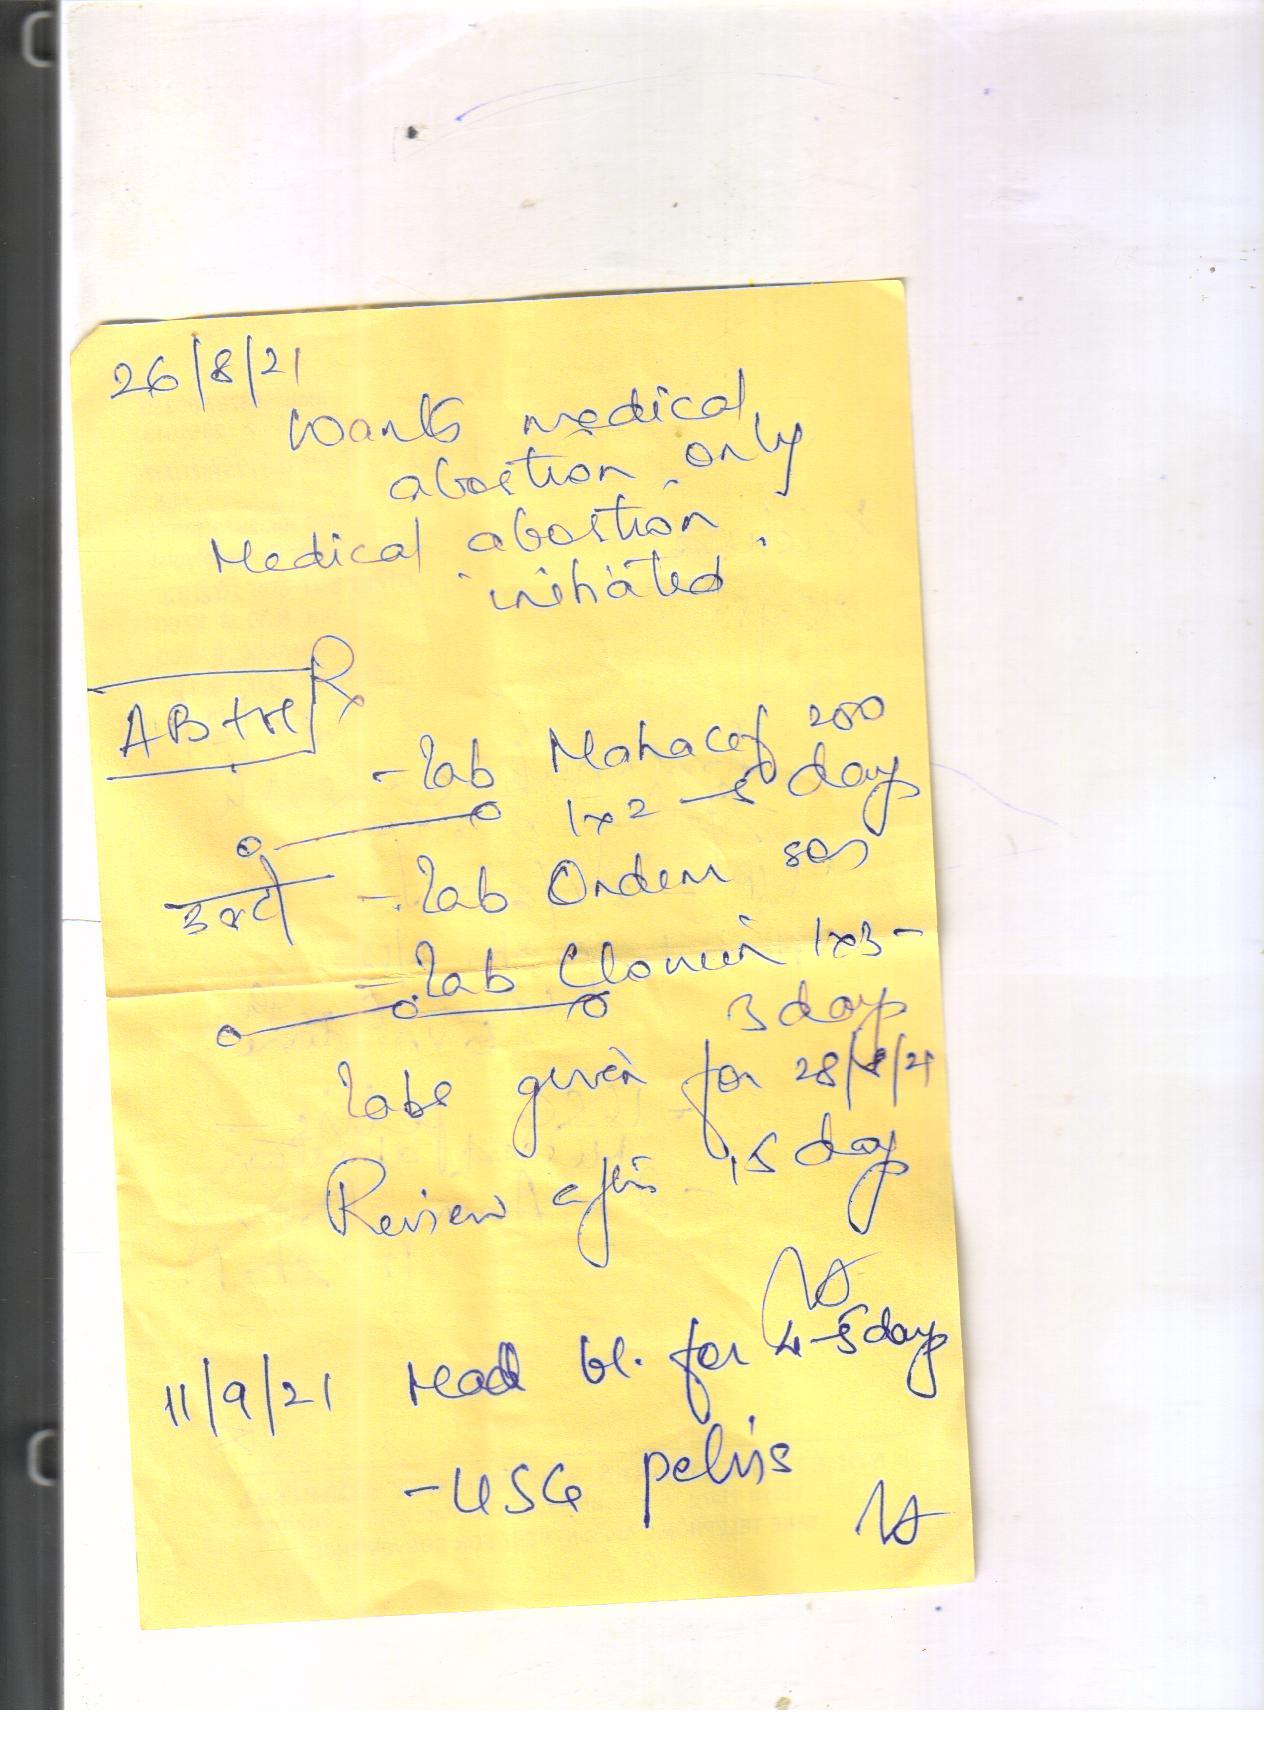 26/8/21
Wants medical
abortion only
Medical abortion
initiated.
AB +ve Rx
- Tab Mahacef 200
1x2 - 5 days
उल्टी - Tab Ondem sos
- Tab 1x3 -
3 days
Tabs given for 28/8/21
Review after 15 days
11/9/21 Had bl. for 4-5 days
- USG pelvis